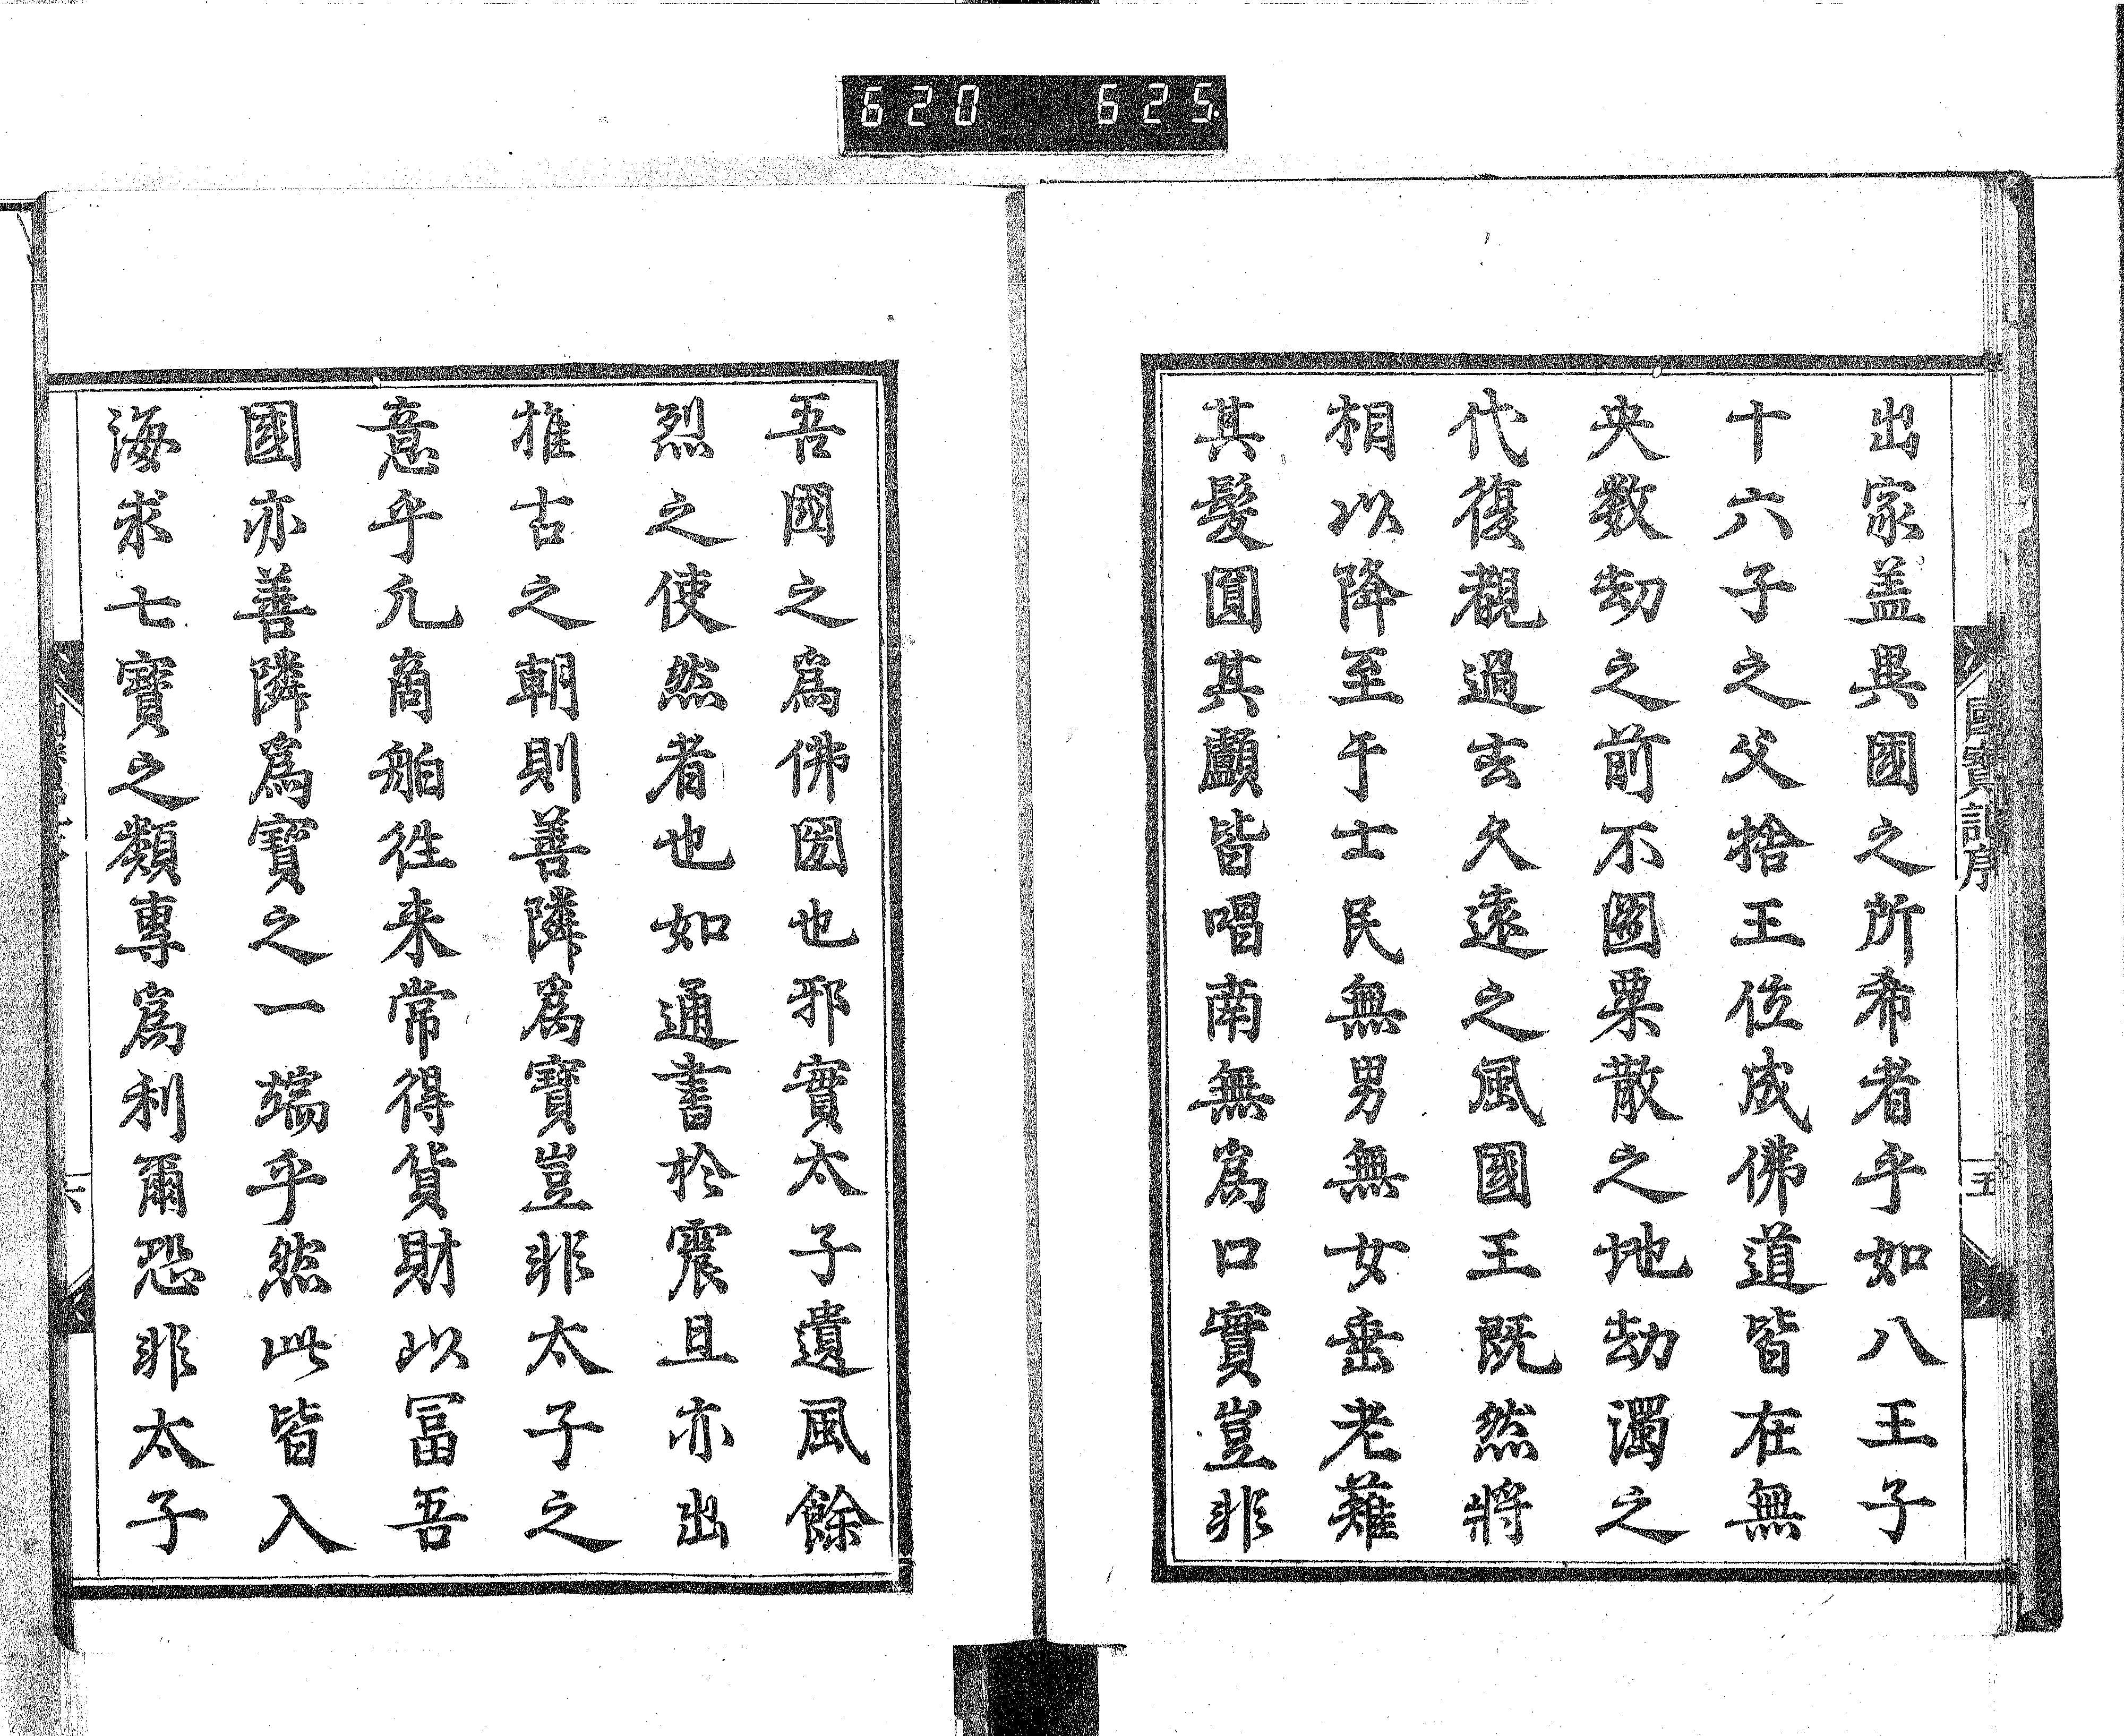 620 625.
國寶記序
五
出家盖異國之所希者乎如八王子
十六子之父捨王位成佛道皆在無
央数劫之前不圖粟散之地劫濁之
代復覩過去久遠之風國王既然將
相以降至于士民無男無女垂老薙
其髮圓其顱皆唱南無為口實豈非
吾國之為佛圀也邪實太子遺風餘
烈之使然者也如通書於震旦亦出
推古之朝則善隣為寶豈非太子之
意乎凢商舶徃来常得貨財以冨吾
國亦善隣為寶之一端乎然此皆入
海求七寶之類專為利爾恐非太子
六